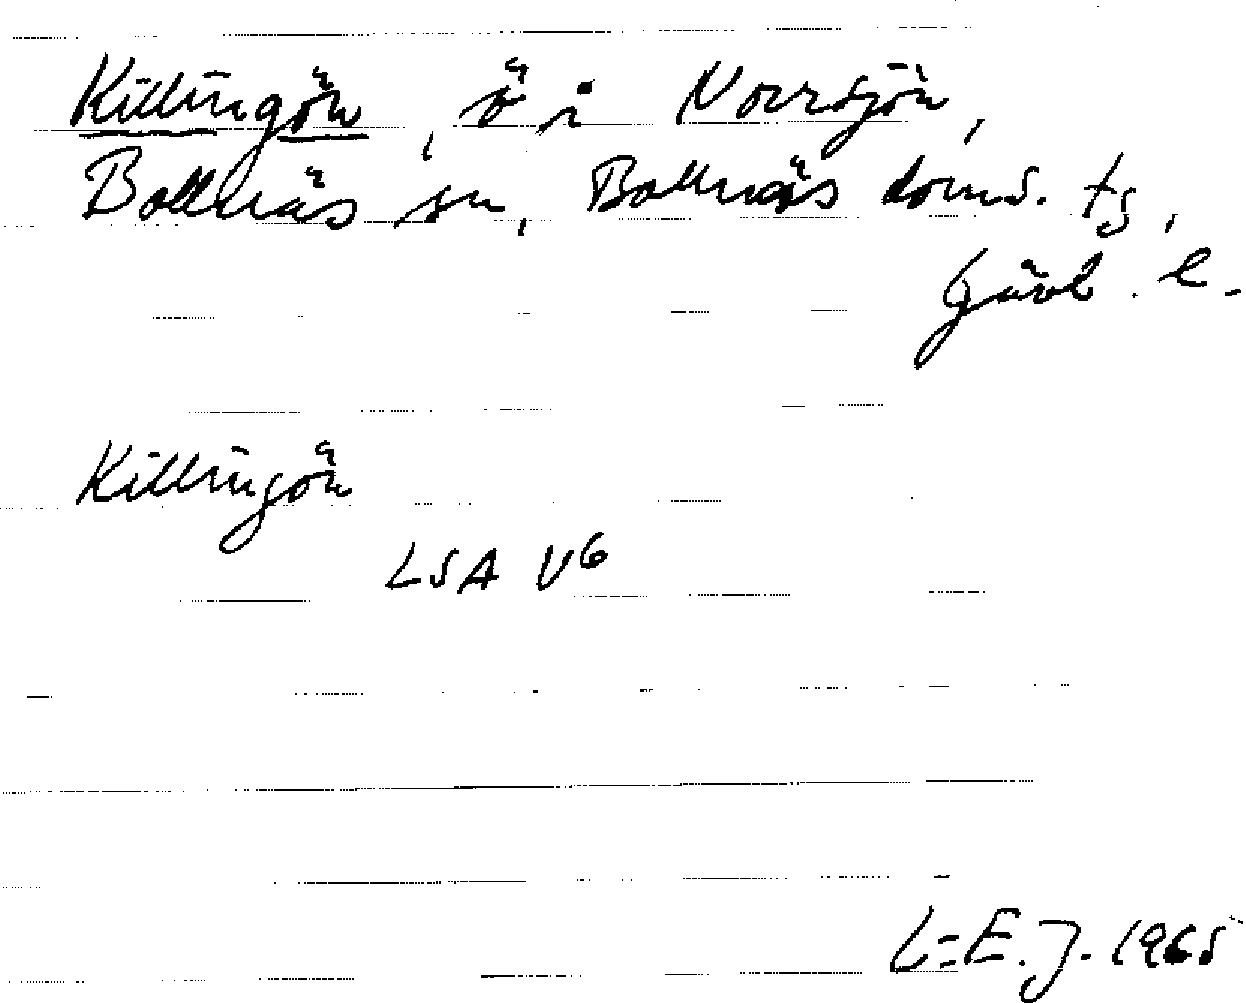 Killingön, ö i Norrsjön,
Bollnäs sn, Bollnäs doms. tg,
Gävl. l.
Killingön
LSA V6
L-E.J. 1965